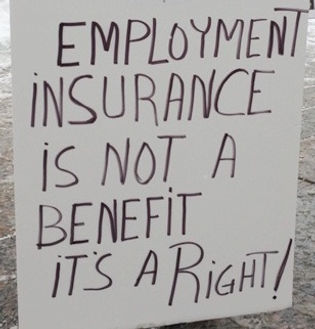 EMPLOYMENT
INSURANCE
IS NOT A
BENEFIT
IT'S A RIGHT!